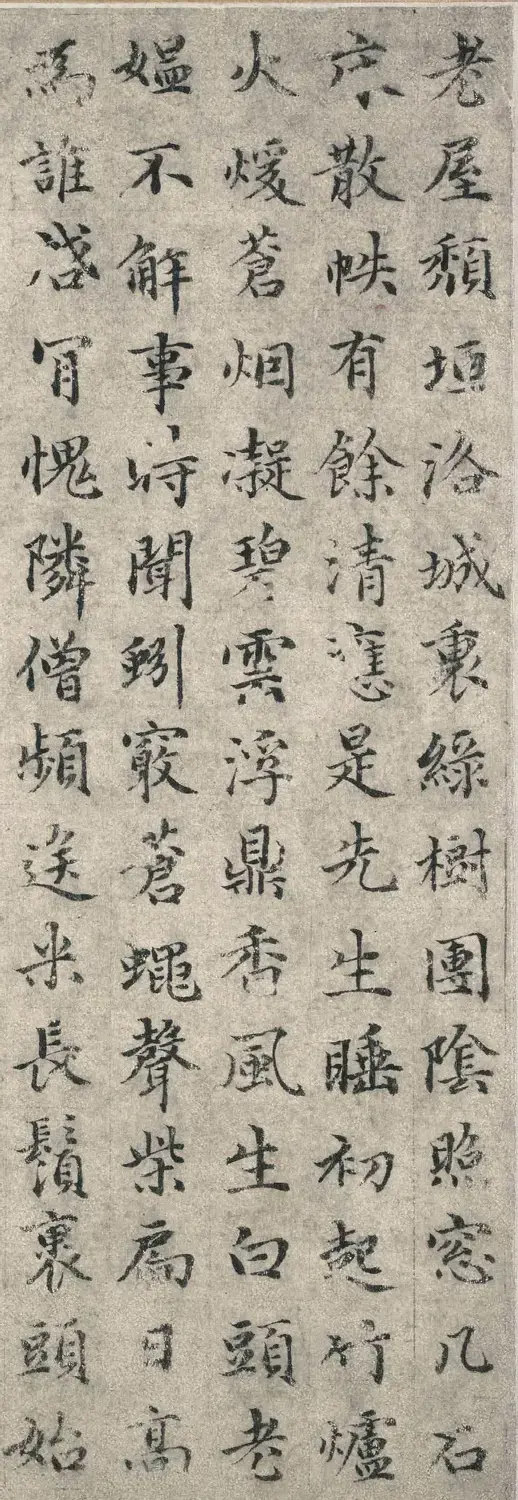 老屋頽垣洛城裏綠樹團陰照窓几石
床散帙有餘清應是先生睡初起竹爐
火煖蒼烟凝碧雲浮鼎香風生白頭老
媼不解事時聞蚓竅蒼蠅聲柴扃日高
爲誰啓肎愧隣僧頻送米長鬚裹頭始